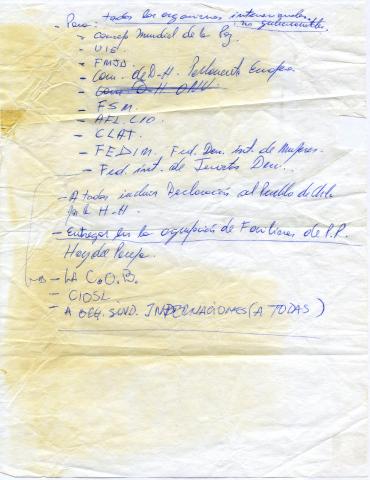 - Para: todos los organismos internacionales
no gubernamentales.
- Consejo Mundial de la Paz
- UIE
- FMJD.
- Com. de D-H. Parlamento Europeo
- Com. D-H ONU
- FSM.
- AFL CIO.
- CLAT.
- FEDIM. Fed. Dem. Int. de Mujeres.
- Fed. int. de Juventud Dem..
- A todos incluir Declaración al Pueblo de Chile
H-H.
- Entregar en la agrupación de Familiares de P.P.
- LA C.O.B.
- CIOSL.
- A ORG. SIND. INTERNACIONES (A TODAS)